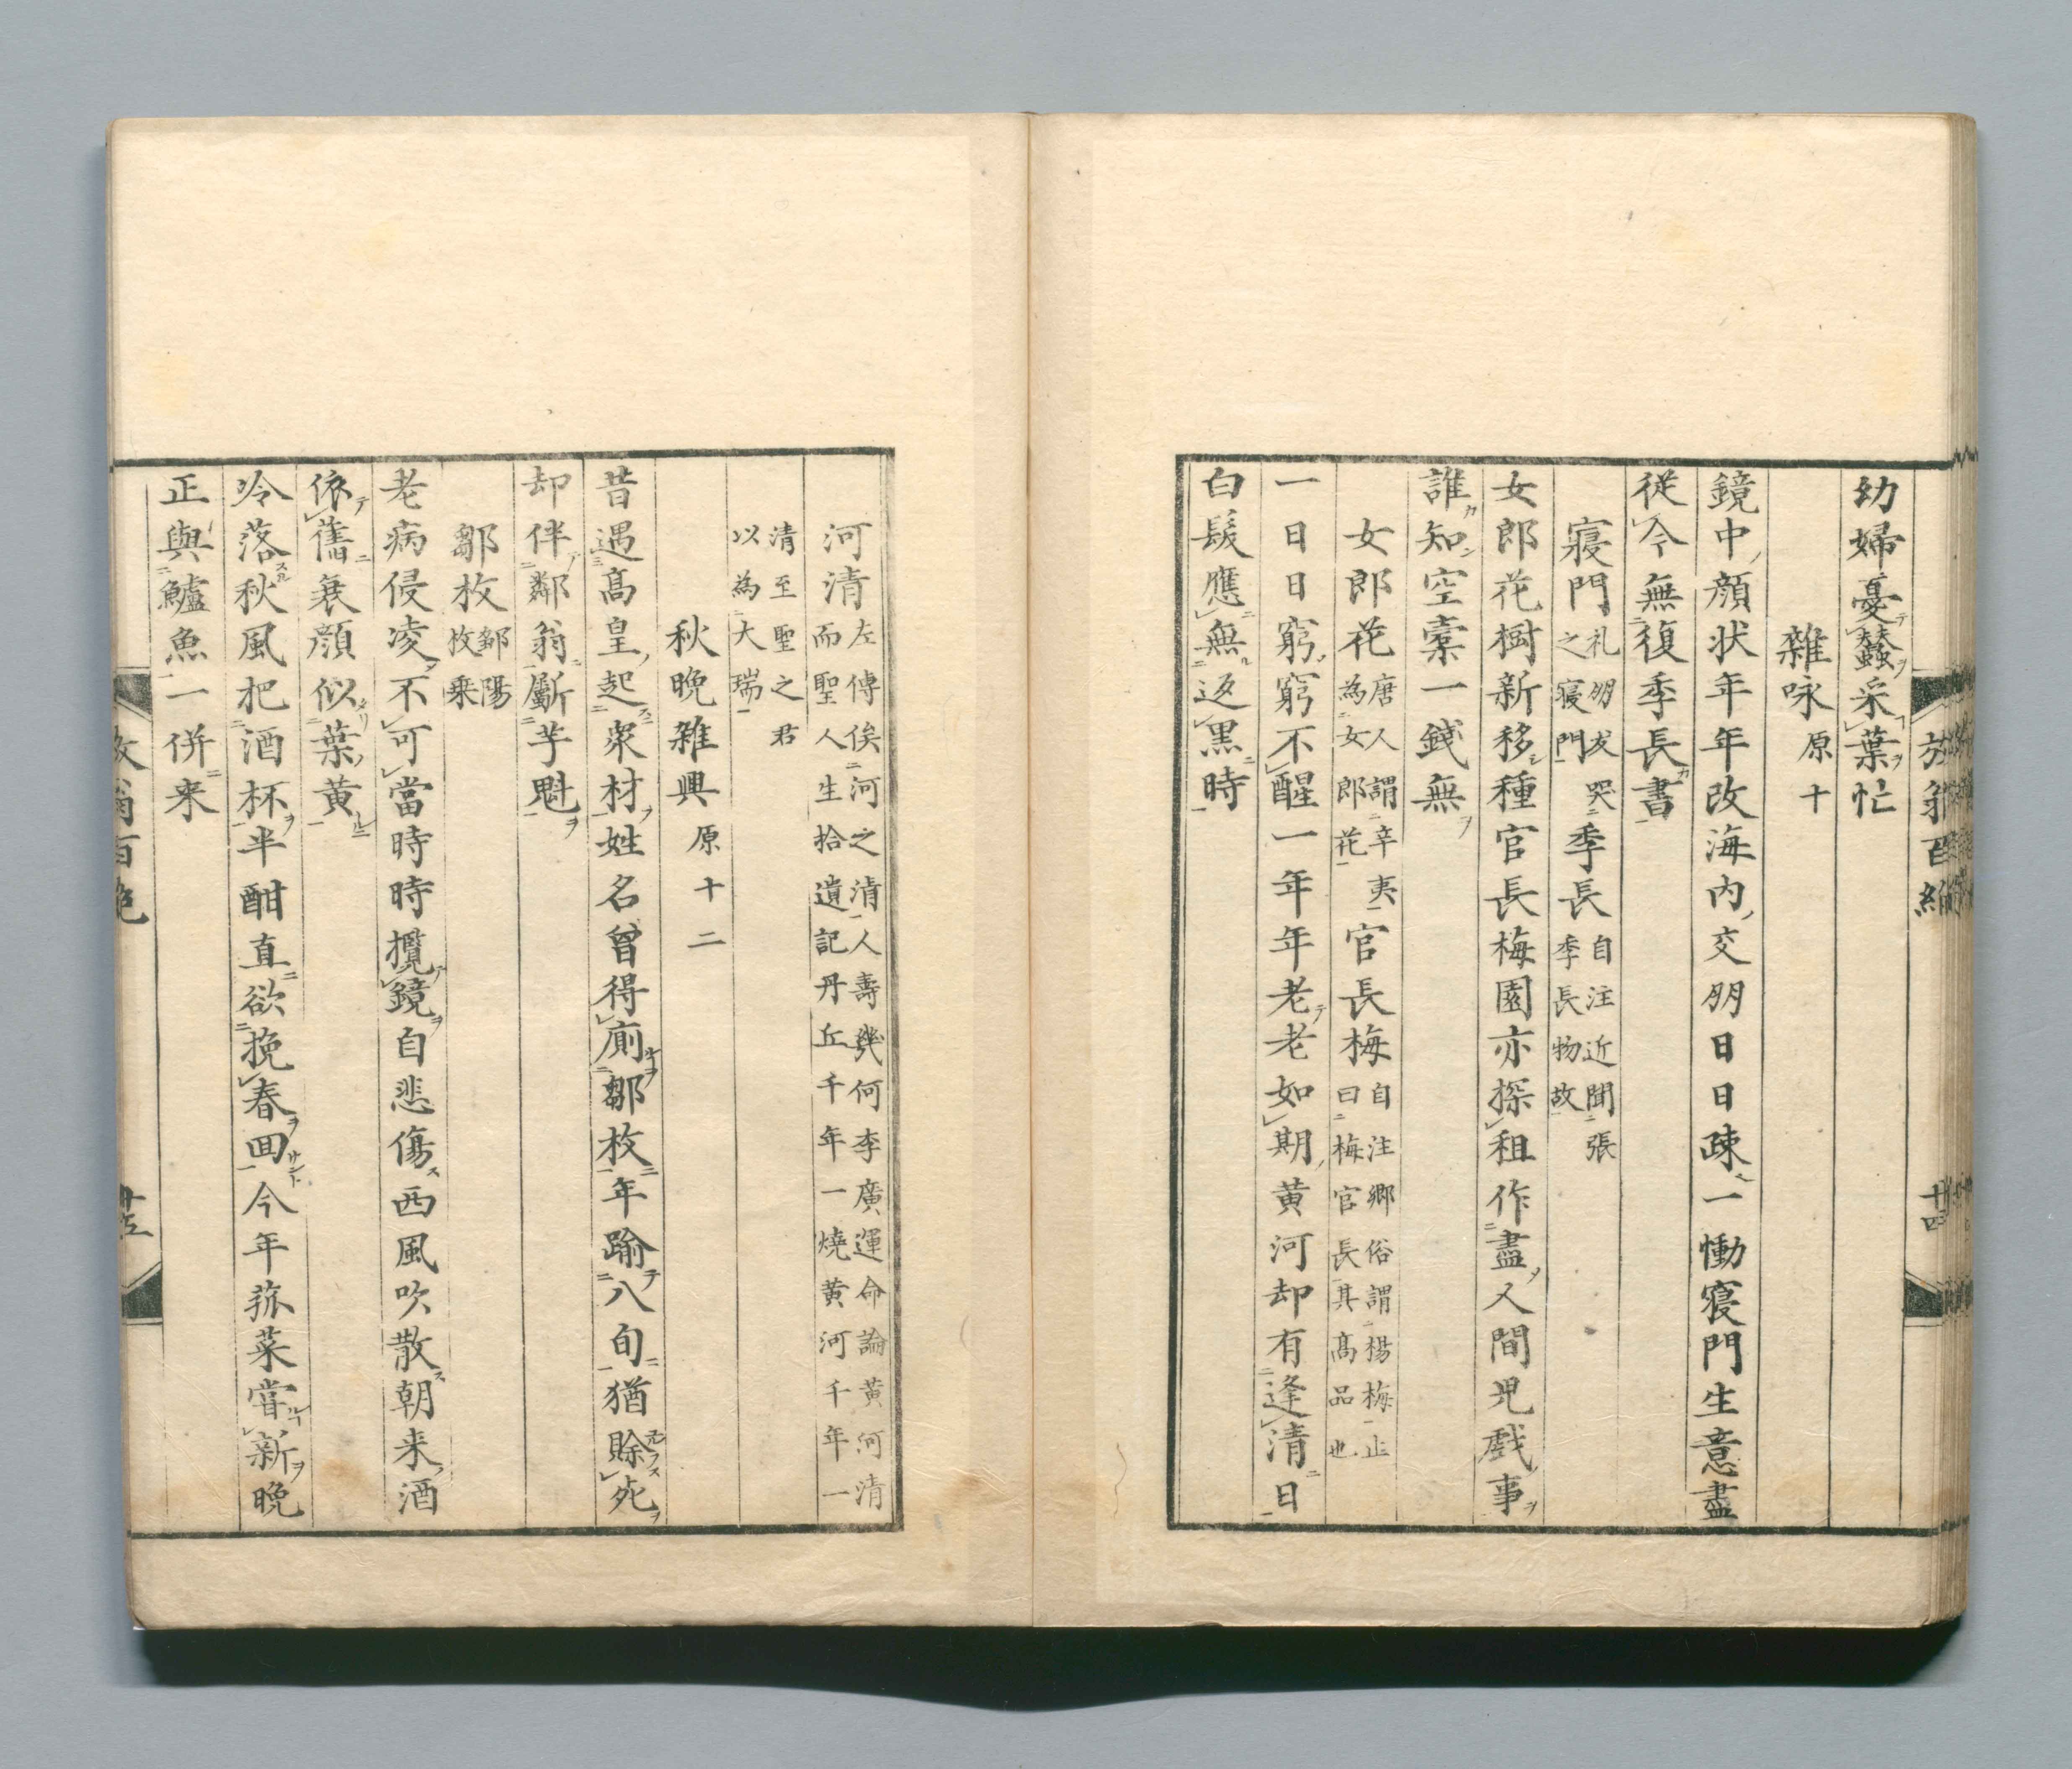 放翁百絶
廿四
幼婦憂蠶采葉忙
雜咏原十
鏡中顔状年年改海内交朋日日疎一慟寢門生意盡
從今無復季長書
寢門礼朋友哭之寢門季長自注近聞張季長物故
女郎花樹新移種官長梅園亦探租作盡人間児戲事
誰知空橐一錢無
女郎花唐人謂辛夷為女郎花官長梅自注郷俗謂楊梅止曰梅官長其髙品也
一日日窮窮不醒一年年老老如期黄河却有逢清日
白髮應無返黒時
河清左傳俟河之清人壽幾何李廣運命論黄河清一而聖人生拾遺記丹丘千年一燒黄河千年一
清至聖之君以為大瑞
秋晩雜興原十二
昔遇髙皇起衆材姓名曾得厠鄒枚年踰八旬猶賖死
却伴鄰翁斸芋魁
鄒枚鄒陽枚乗
老病侵凌不可當時時攬鏡自悲傷西風吹散朝来酒
依舊衰顔似葉黄
冷落秋風把酒杯半酣直欲挽春囬今年菰菜嘗新晩
正與鱸魚一併来
放翁百絶
廿五